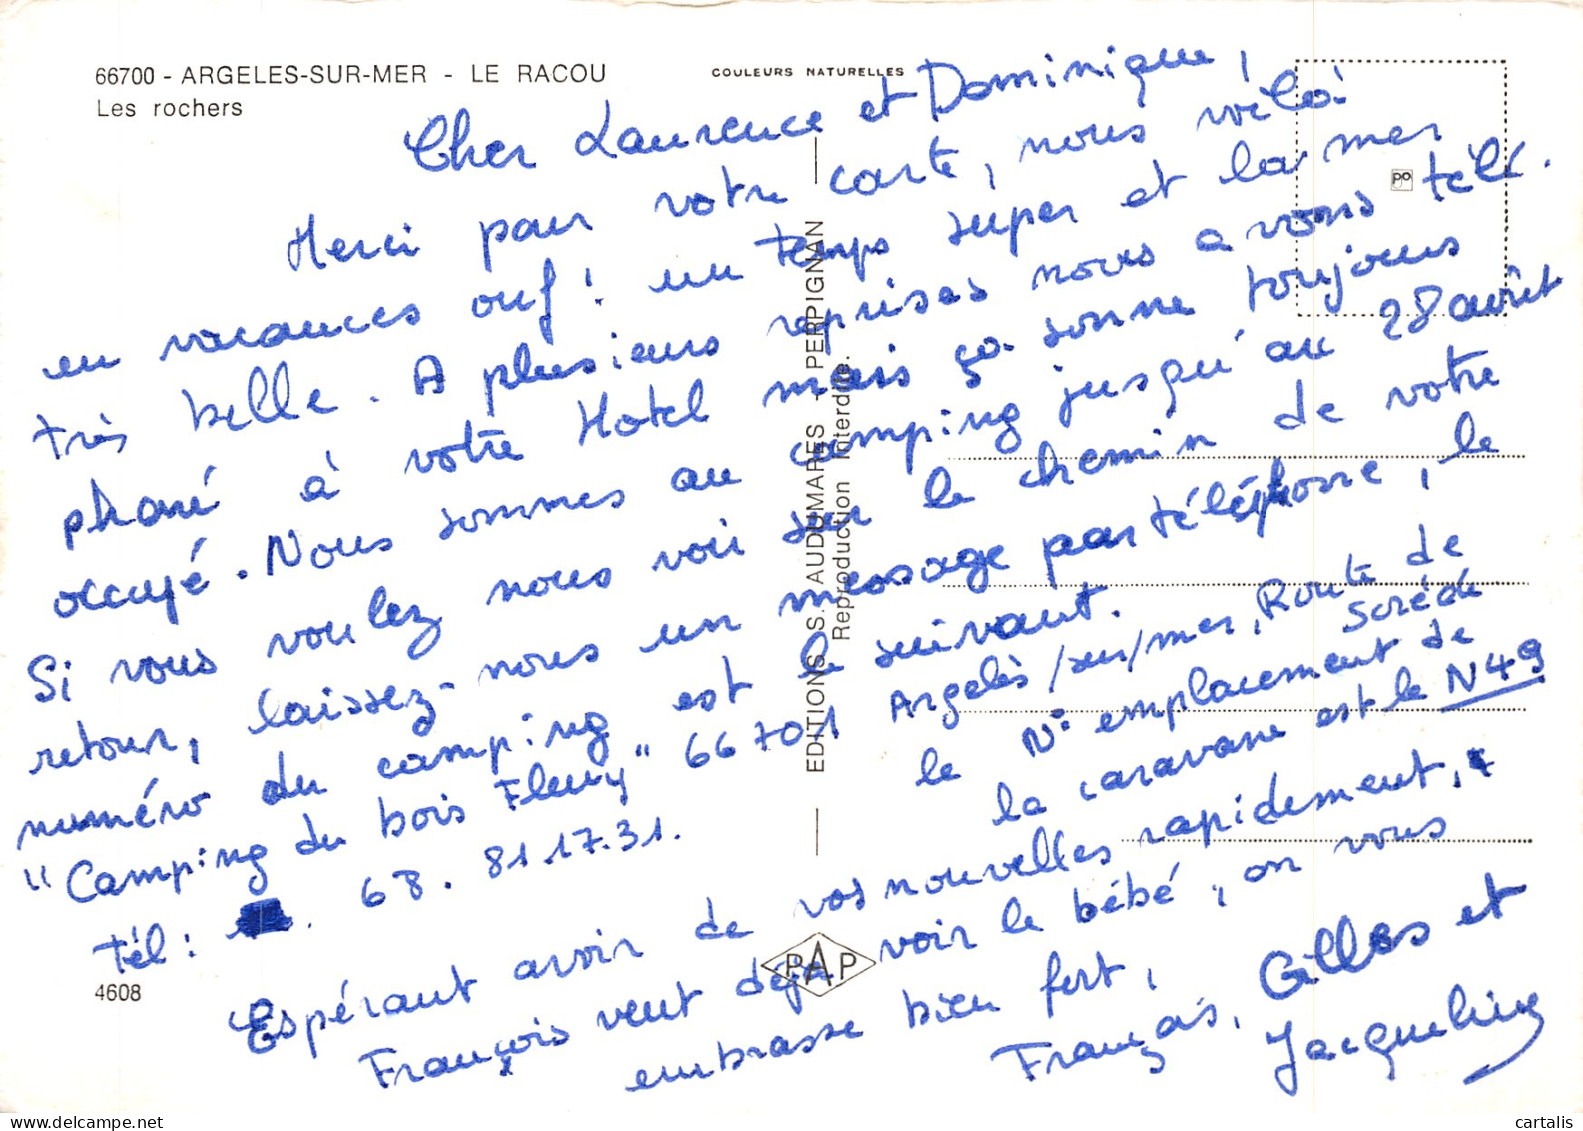 66700 - ARGELES-SUR-MER - LE RACOU
Les rochers
COULEURS NATURELLES
Cher Laurence et Dominique,
Merci pour votre carte, nous voilà
en vacances ouf! un temps super et la mer
très belle. A plusieurs reprises nous avons télé.
phoné à votre Hotel mais ça sonne toujours
occupé. Nous sommes au camping jusqu'au 28 août
Si vous voulez nous voir sur le chemin de votre
retour, laissez-nous un message par téléphone, le
numéro du camping est le suivant.
"Camping du bois Fleury" 66701 Argelès/sur/mer, Route de
Sorède
Tél: 68. 81.17.31.
le N° emplacement de
la caravane est le N49
Espérant avoir de vos nouvelles rapidement,
François veut déjà voir le bébé, on vous
embrasse bien fort,
François, Gilles et
Jacqueline
po
EDITIONS S. AUDUMARES - PERPIGNAN
Reproduction interdite.
PAP
4608
www.delcampe.net
cartalis